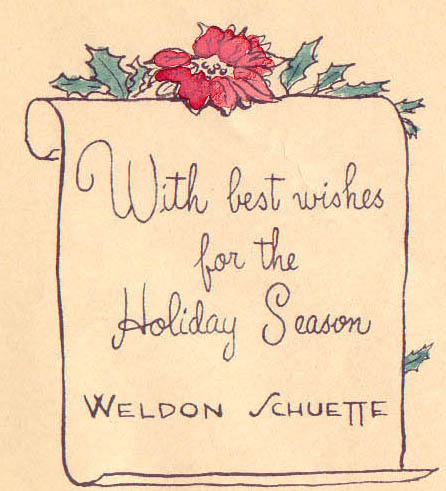 With best wishes
for the
Holiday Season
WELDON SCHUETTE